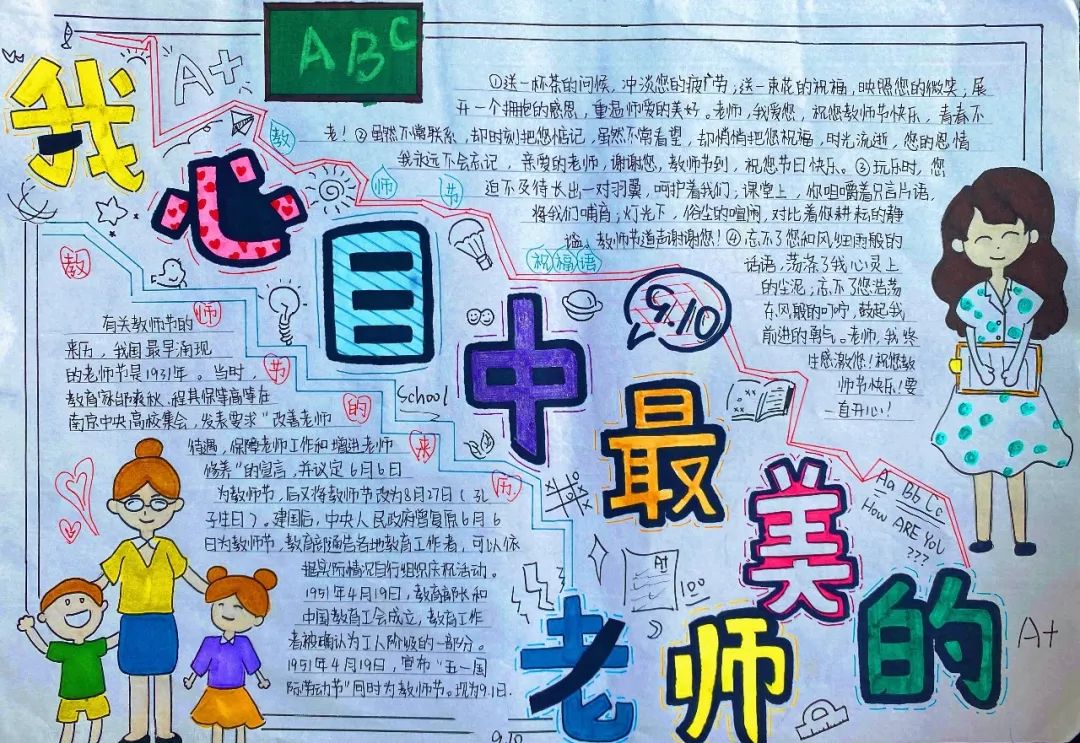 我心目中最美的老师
ABC
A+
教师节祝福语
①送一杯茶的问候,冲淡您的疲劳;送一束花的祝福,映照您的微笑;展
开一个拥抱的感恩,重温师爱的美好。老师,我爱您,祝您教师节快乐,青春不
老!②虽然不常联系,却时刻把您惦记,虽然不常看望,却悄悄把您祝福,时光流逝,您的恩情
我永远不会忘记,亲爱的老师,谢谢您,教师节到,祝您节日快乐。③玩乐时,您
迫不及待长出一对羽翼,呵护着我们;课堂上,你咀嚼着只言片语,
将我们哺育;灯光下,俗尘的喧闹,对比着你耕耘的静
谧,教师节道声谢谢您!④忘不了您和风细雨般的
话语,荡涤了我心灵上
的尘泥;忘不了您浩荡
东风般的叮咛,鼓起我
前进的勇气。老师,我终
生感激您!祝您教
师节快乐!要
一直开心!
9.10
教师节的来历
有关教师节的
来历,我国最早涌现
的老师节是1931年。当时,
教育家邰爽秋、程其保等高等在
南京中央高校集会,发表要求"改善老师
待遇,保障老师工作和增进老师
修养"的宣言,并议定6月6日
为教师节,后又将教师节改为8月27日(孔
子生日)。建国后,中央人民政府曾复原6月6
日为教师节,教育部通告各地教育工作者,可以依
据实际情况自行组织庆祝活动。
1951年4月19日,教育部长和
中国教育工会成立,教育工作
者被确认为工人阶级的一部分。
1951年4月19日,宣布"五一国
际劳动节"同时为教师节。现为9.1日.
School
Aa Bb Cc
How ARE YoU
???
A+
100
A+
9.10